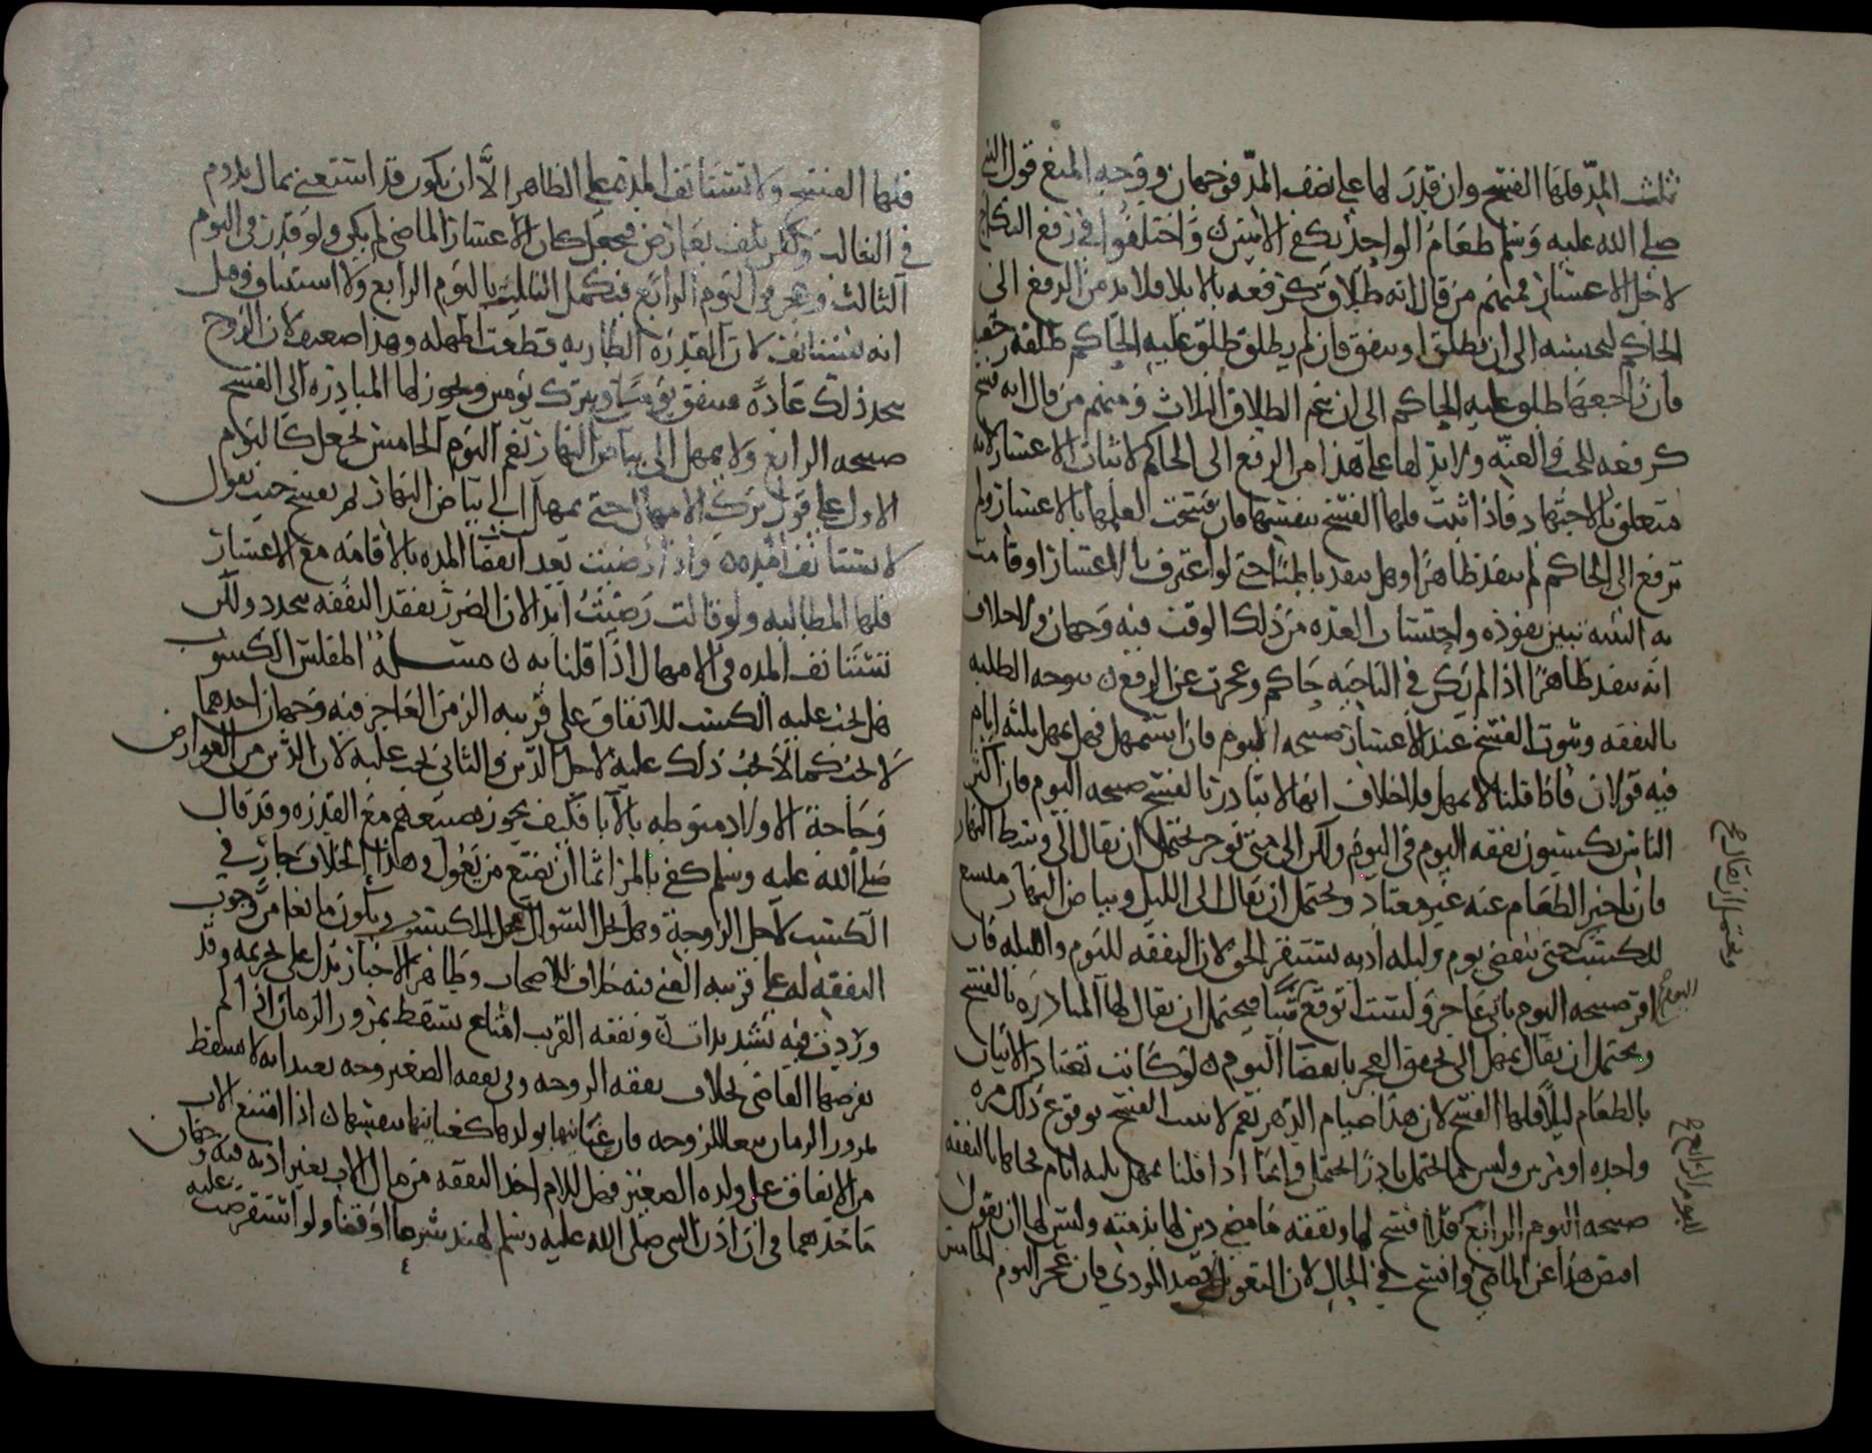 ثلث المدّ فلها الفسخ وان قدر لها على نصف المدّ فوجهان ووجه المنع قول النبي
صلى الله عليه وسلم طعام الواحد يكفي الاثنين واختلفوا في رفع النكاح
لاجل الاعسار فمنهم من قال انه طلاق كرفعه بالايلا فلا بد من الرفع الى
الحاكم ليحبسه الى ان يطلق او ينفق فان لم يطلق طلق عليه الحاكم طلقه رجعيه
فان راجعها طلق عليه الحاكم الى ان يتم الطلاق الثلاث ومنهم من قال انه فسخ
كرفعه للجب والعنّه ولا بد لها على هذا من الرفع الى الحاكم لاثبات الاعسار لانه
متعلق بالاجتهاد فاذا ثبت فلها الفسخ بنفسها فان فسخت لعلمها بالاعسار ولم
ترفع الى الحاكم لم ينفذ ظاهرا وهل ينفذ باطنا حتى لو اعترف بالاعسار او قامت
به البينه تبين نفوذه واحتساب العده من ذلك الوقت فيه وجهان ولا خلاف
انه ينفذ ظاهرا اذا لم يكن في الناحيه حاكم وعجزت عن الرفع يتوجه الطلبه
بالنفقه وثبوت الفسخ عند الاعسار صبيحه اليوم فان استمهل فهل يمهل ثلثه ايام
فيه قولان فاذا قلنا لا يمهل فلا خلاف انها لا تبادر بالفسخ صبيحه اليوم فان اكثر
الناس يكتسبون نفقه اليوم في اليوم ولكن الى متى توخر يحتمل ان يقال الى وسط النهار
فان تاخير الطعام عنه غير معتاد ويحتمل ان يقال الى الليل وبياض النهار متسع
للكسب حتى ينقضي يوم وليله اذ به يستقر الحق لان النفقه لليوم والليله فان
اقر صبيحه اليوم باني عاجز ولست اتوقع شيا فيحتمل ان يقال لها المبادره بالفسخ
ويحتمل ان يقال يمهل الى تحقق العجز بانقضا اليوم لو كانت تعتاد الاتيان
بالطعام ليلا فلها الفسخ لان هذا صيام الدهر نعم لا يثبت الفسخ بوقوع ذلك مره
واحده او مرتين وانما اذا قلنا يمهل ثلثه ايام فجاها بالنفقه
صبيحه اليوم الرابع فلا فسخ لها ونفقه ما مضى دين لها بذمته وليس لها ان تقول
اقبض هذا عن الماضي وافسخ في الحال لان التعويل على قصد المودي فان عجز اليوم الخامس
اليوم
اليوم الرابع
فلها الفسخ ولا تستانف المده على الظاهر الّا ان يكون قد استغنى بمال يدوم
في الغالب ولكن تلف بعارض فيجعل كان الاعسار الماضي لم يكن ولو قدر في اليوم
الثالث وعجز في اليوم الرابع فيكمل الثلث باليوم الرابع ولا استيناف وقيل
انه يستانف لان القدره الطاريه قطعت المهله وهذا ضعيف لان الزوج
يتخذ ذلك عادةً فينفق يوما ويترك يومين ويجوز لها المبادره الى الفسخ
صبيحه الرابع ولا يمهل الى بياض النهار نعم اليوم الخامس نجعل كاليوم
الاول على قول ترك الامهال حتى يمهل الى بياض النهار لم يفسخ حيث نقول
لا تستانف المده واذا رضيت بعد انقضا المده بالاقامه مع الاعسار
فلها المطالبه ولو قالت رضيت ابدا لان الضرر بفقد النفقه يتجدد ولكن
تستانف المده في الامهال اذا قلنا به مسـله المفلس الكسوب
هل يجب عليه الكسب للانفاق على قريبه الزمن العاجز فيه وجهان احدهما
لا يجب كما لا يجب ذلك عليه لاجل الدّين والثاني يجب عليه لان الدّين من العوارض
وحاجة الاولاد منوطه بالآبا فكيف يجوز تضييعهم مع القدره وقد قال
صلى الله عليه وسلم كفى بالمرء اثما ان يضيع من يعول وهذا الخلاف جار في
الكسب لاجل الزوجة وهل يحل السوال لاجل المكتسب ويكون مانعا من وجوب
النفقه له على قريبه الغني فيه خلاف للاصحاب وظاهر الاخبار يدل على تحريمه وقد
وردت فيه تشديدات ونفقه القريب امتاع تسقط بمرور الزمان اذا لم
يفرضها القاضي بخلاف نفقه الزوجه وفي نفقه الصغير وجه بعيد انه لا يسقط
بمرور الزمان تبعا للزوجه فان عنايتها بولدها كعنايتها بنفسها اذا امتنع الاب
من الانفاق على ولده الصغير فهل للام اخذ النفقه من مال الاب بغير اذنه فيه وجهان
ماخذهما في ان اذن النبي صلى الله عليه وسلم لهند شرعا او قضا ولو استقرضت عليه